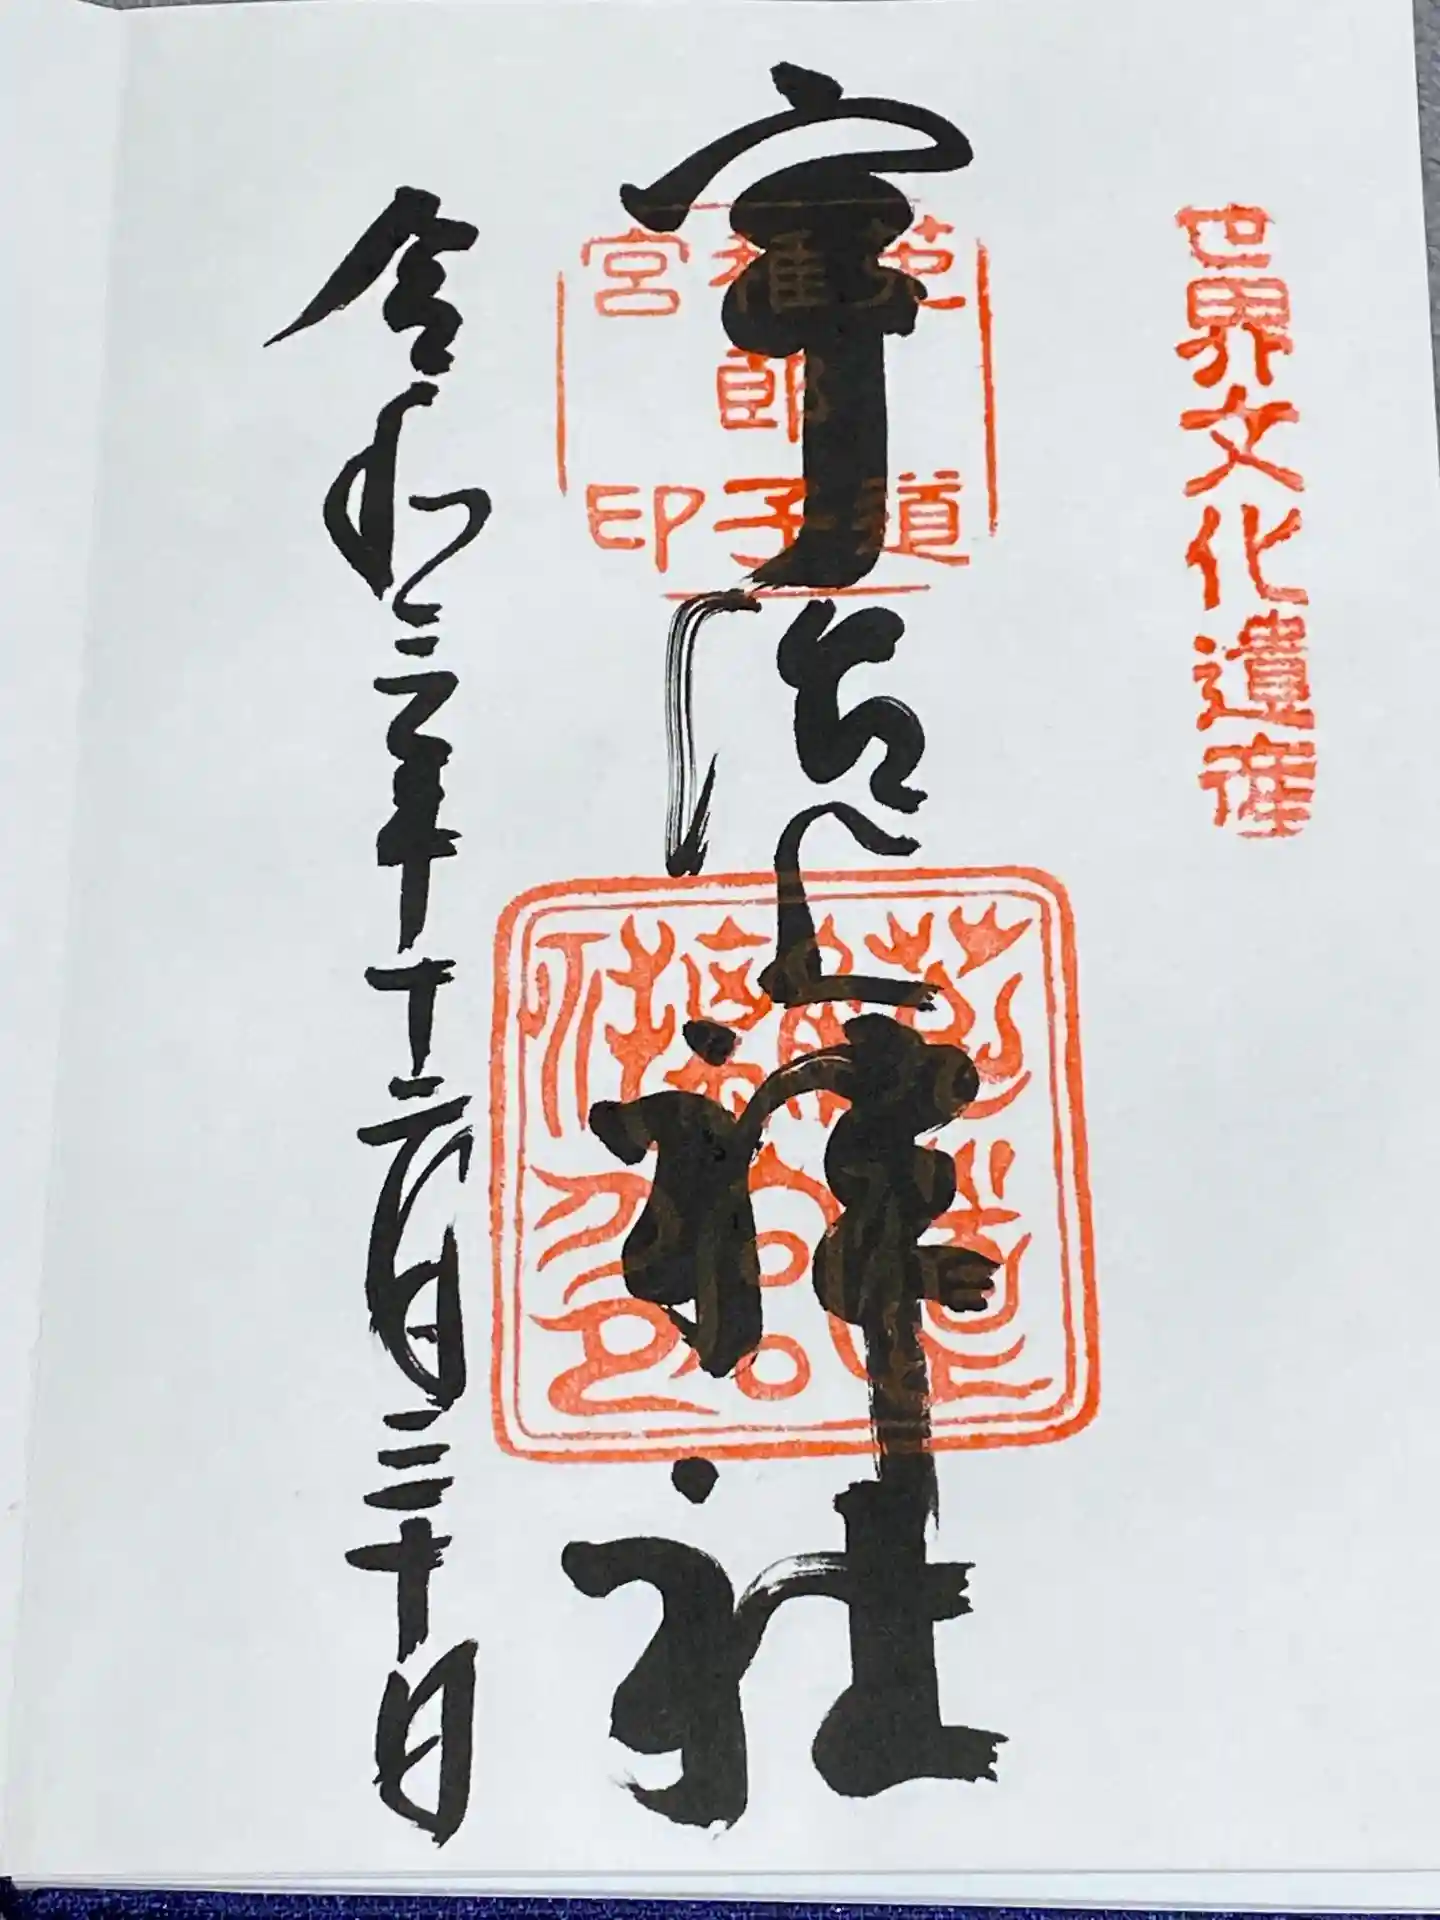 世界文化遺産
宇治上神社
菟道
稚郎子
宮印
令和三年十二月三十日